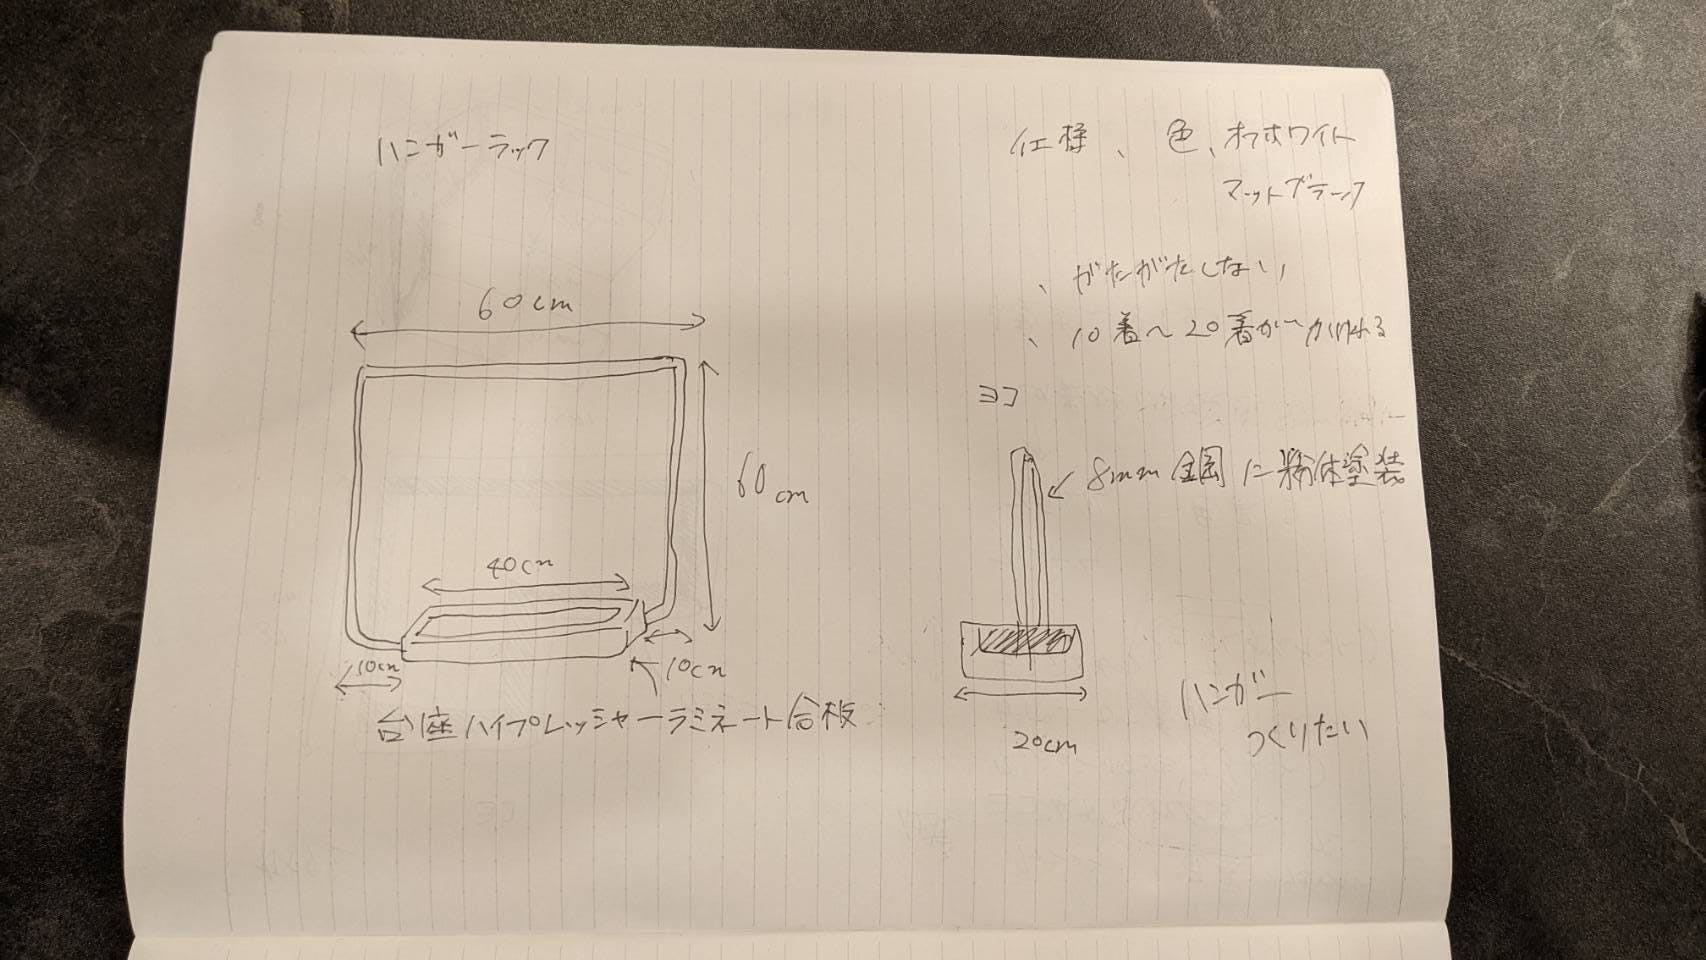 ハンガーラック
60cm
60cm
40cm
10cm
10cm
台座ハイプレッシャーラミネート合板
仕様、色、オフホワイト
マットブラック
、がたがたしない
、10着〜20着がかけれる
ヨコ
8mm 鋼に粉体塗装
20cm
ハンガー
つくりたい